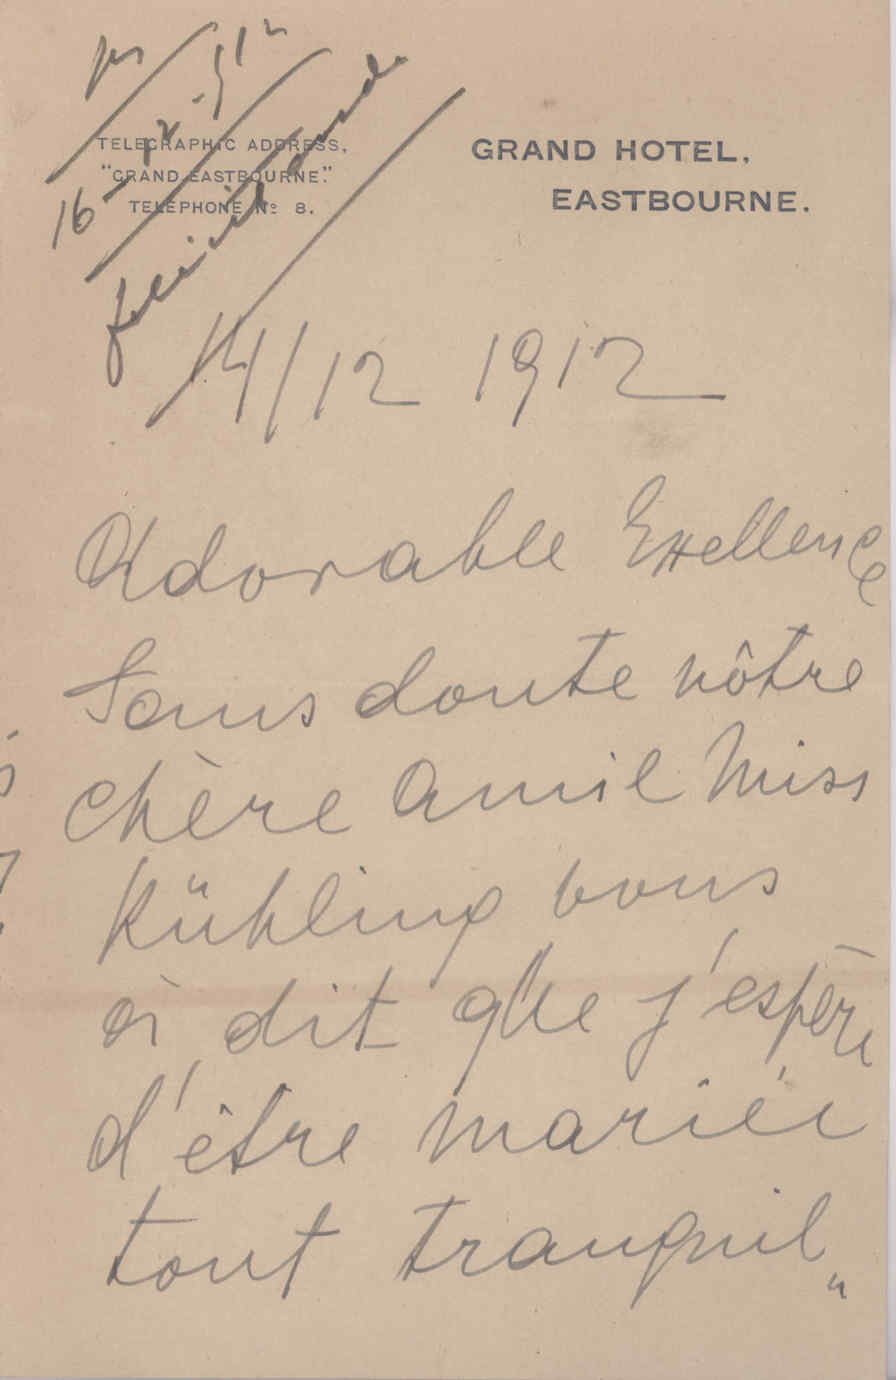 16-12-912
felicitando
TELEGRAPHIC ADDRESS,
"GRAND EASTBOURNE."
TELEPHONE No 8.
GRAND HOTEL,
EASTBOURNE.
14/12 1912
Adorable Exellence
Sans doute nôtre
chère amie Miss
Kühling vous
à dit que j'espère
d'être mariée
tout tranquil„